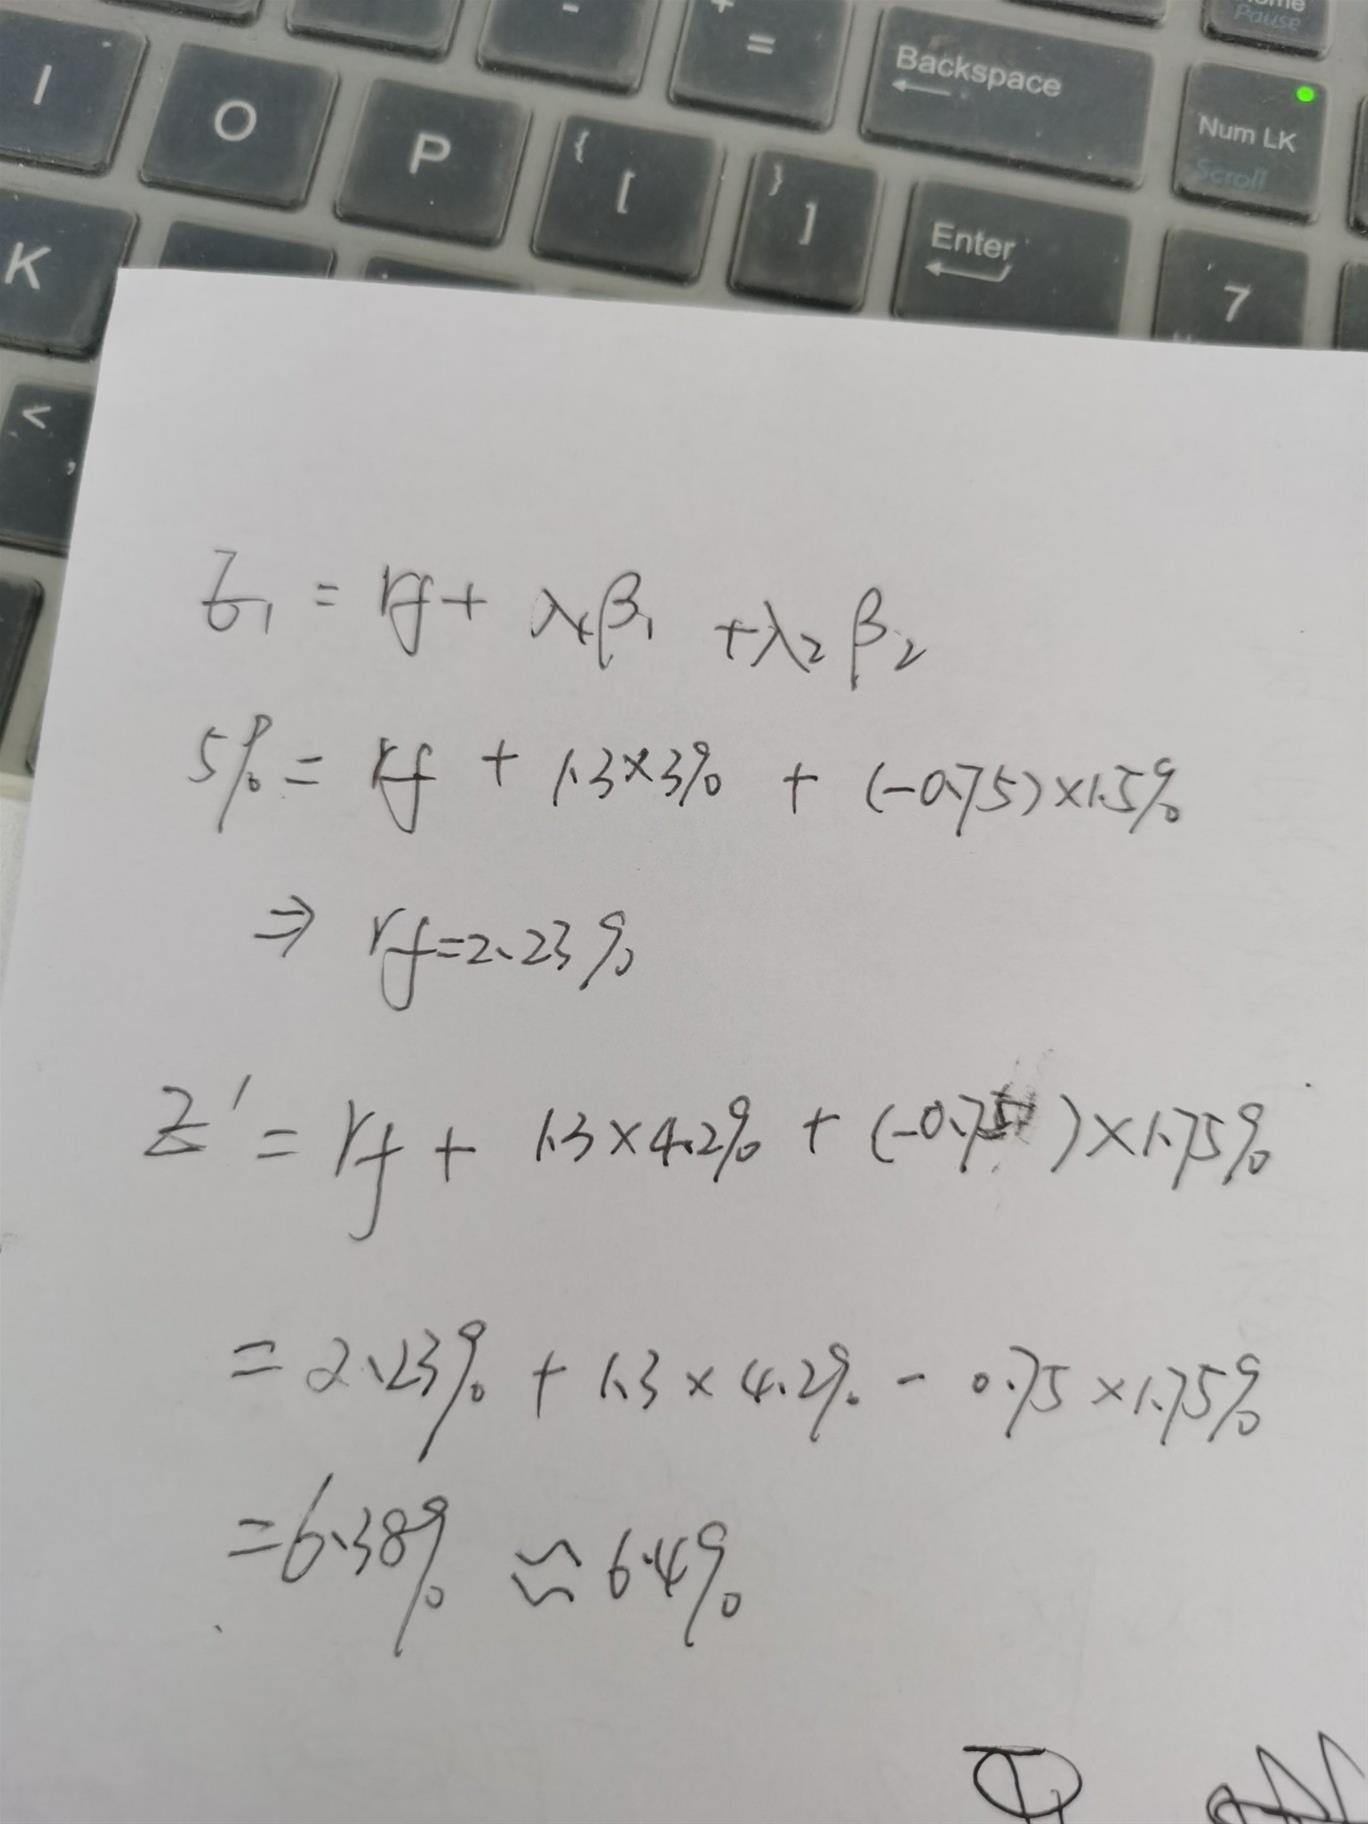 - + =
Backspace
Home
Pause
I O P { [ } ]
Num LK
Scroll
K
Enter
7
< ,
Z₁ = rf + λ₁β₁ + λ₂β₂
5% = rf + 1.3×3% + (-0.75)×1.5%
⇒ rf=2.23%
Z' = rf + 1.3×4.2% + (-0.75)×1.75%
= 2.23% + 1.3×4.2% - 0.75×1.75%
=6.38% ≈ 6.4%